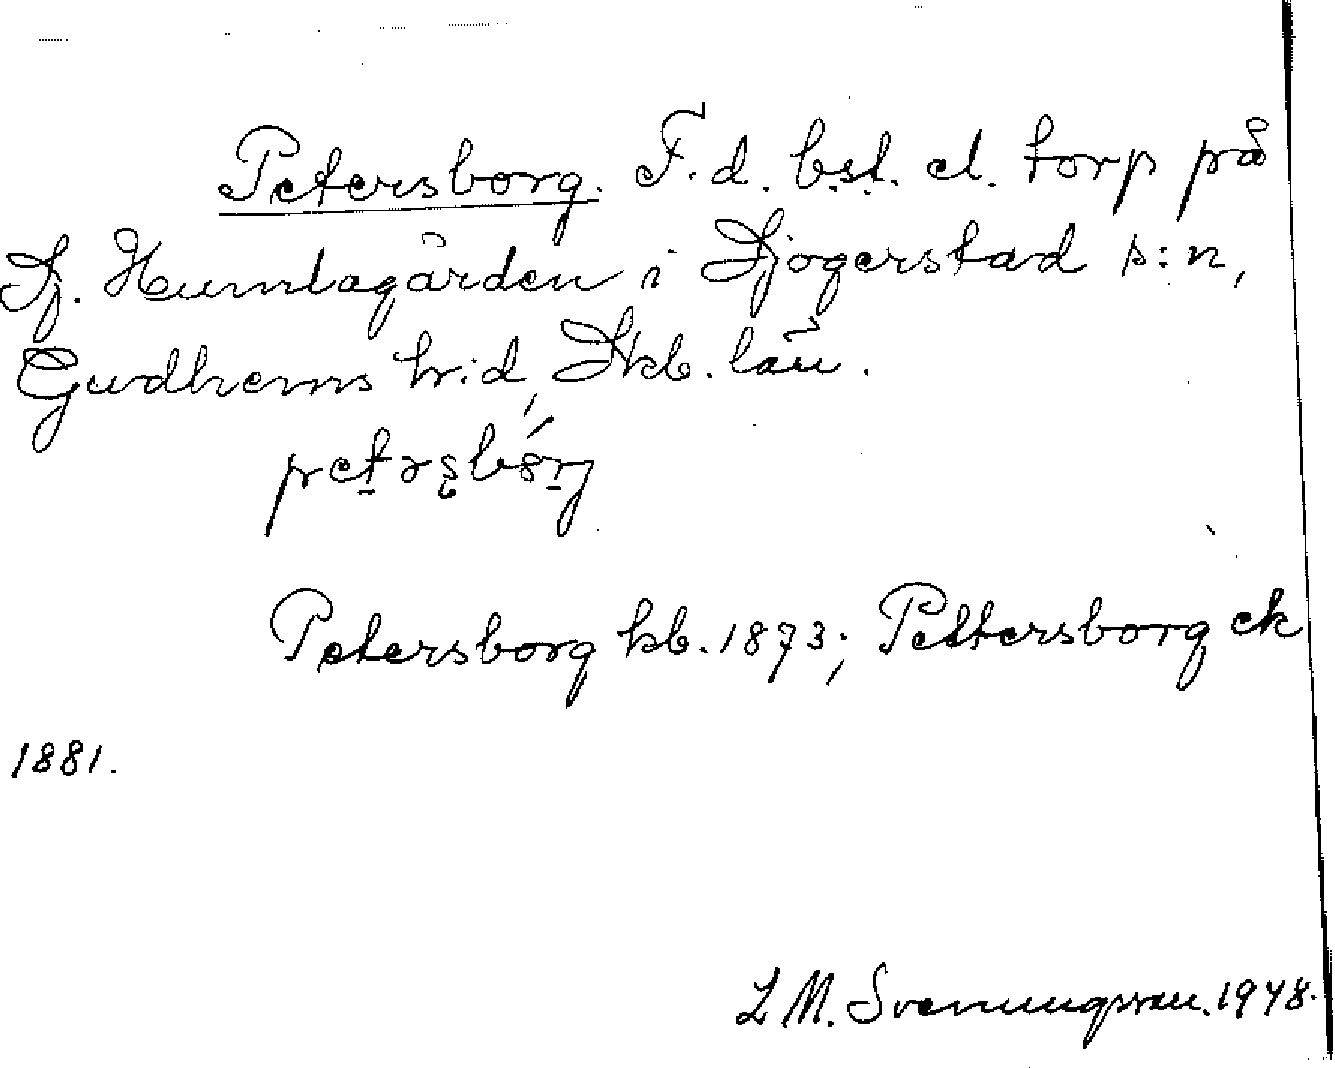 Petersborg. F.d. bst. el. torp på
Sj. Humlagården i Sjogerstad s:n,
Gudhems h:d, Skb. län.
petərsbórj
Petersborg kb. 1873; Pettersborg ek
1881.
L M. Svenungsson. 1948.